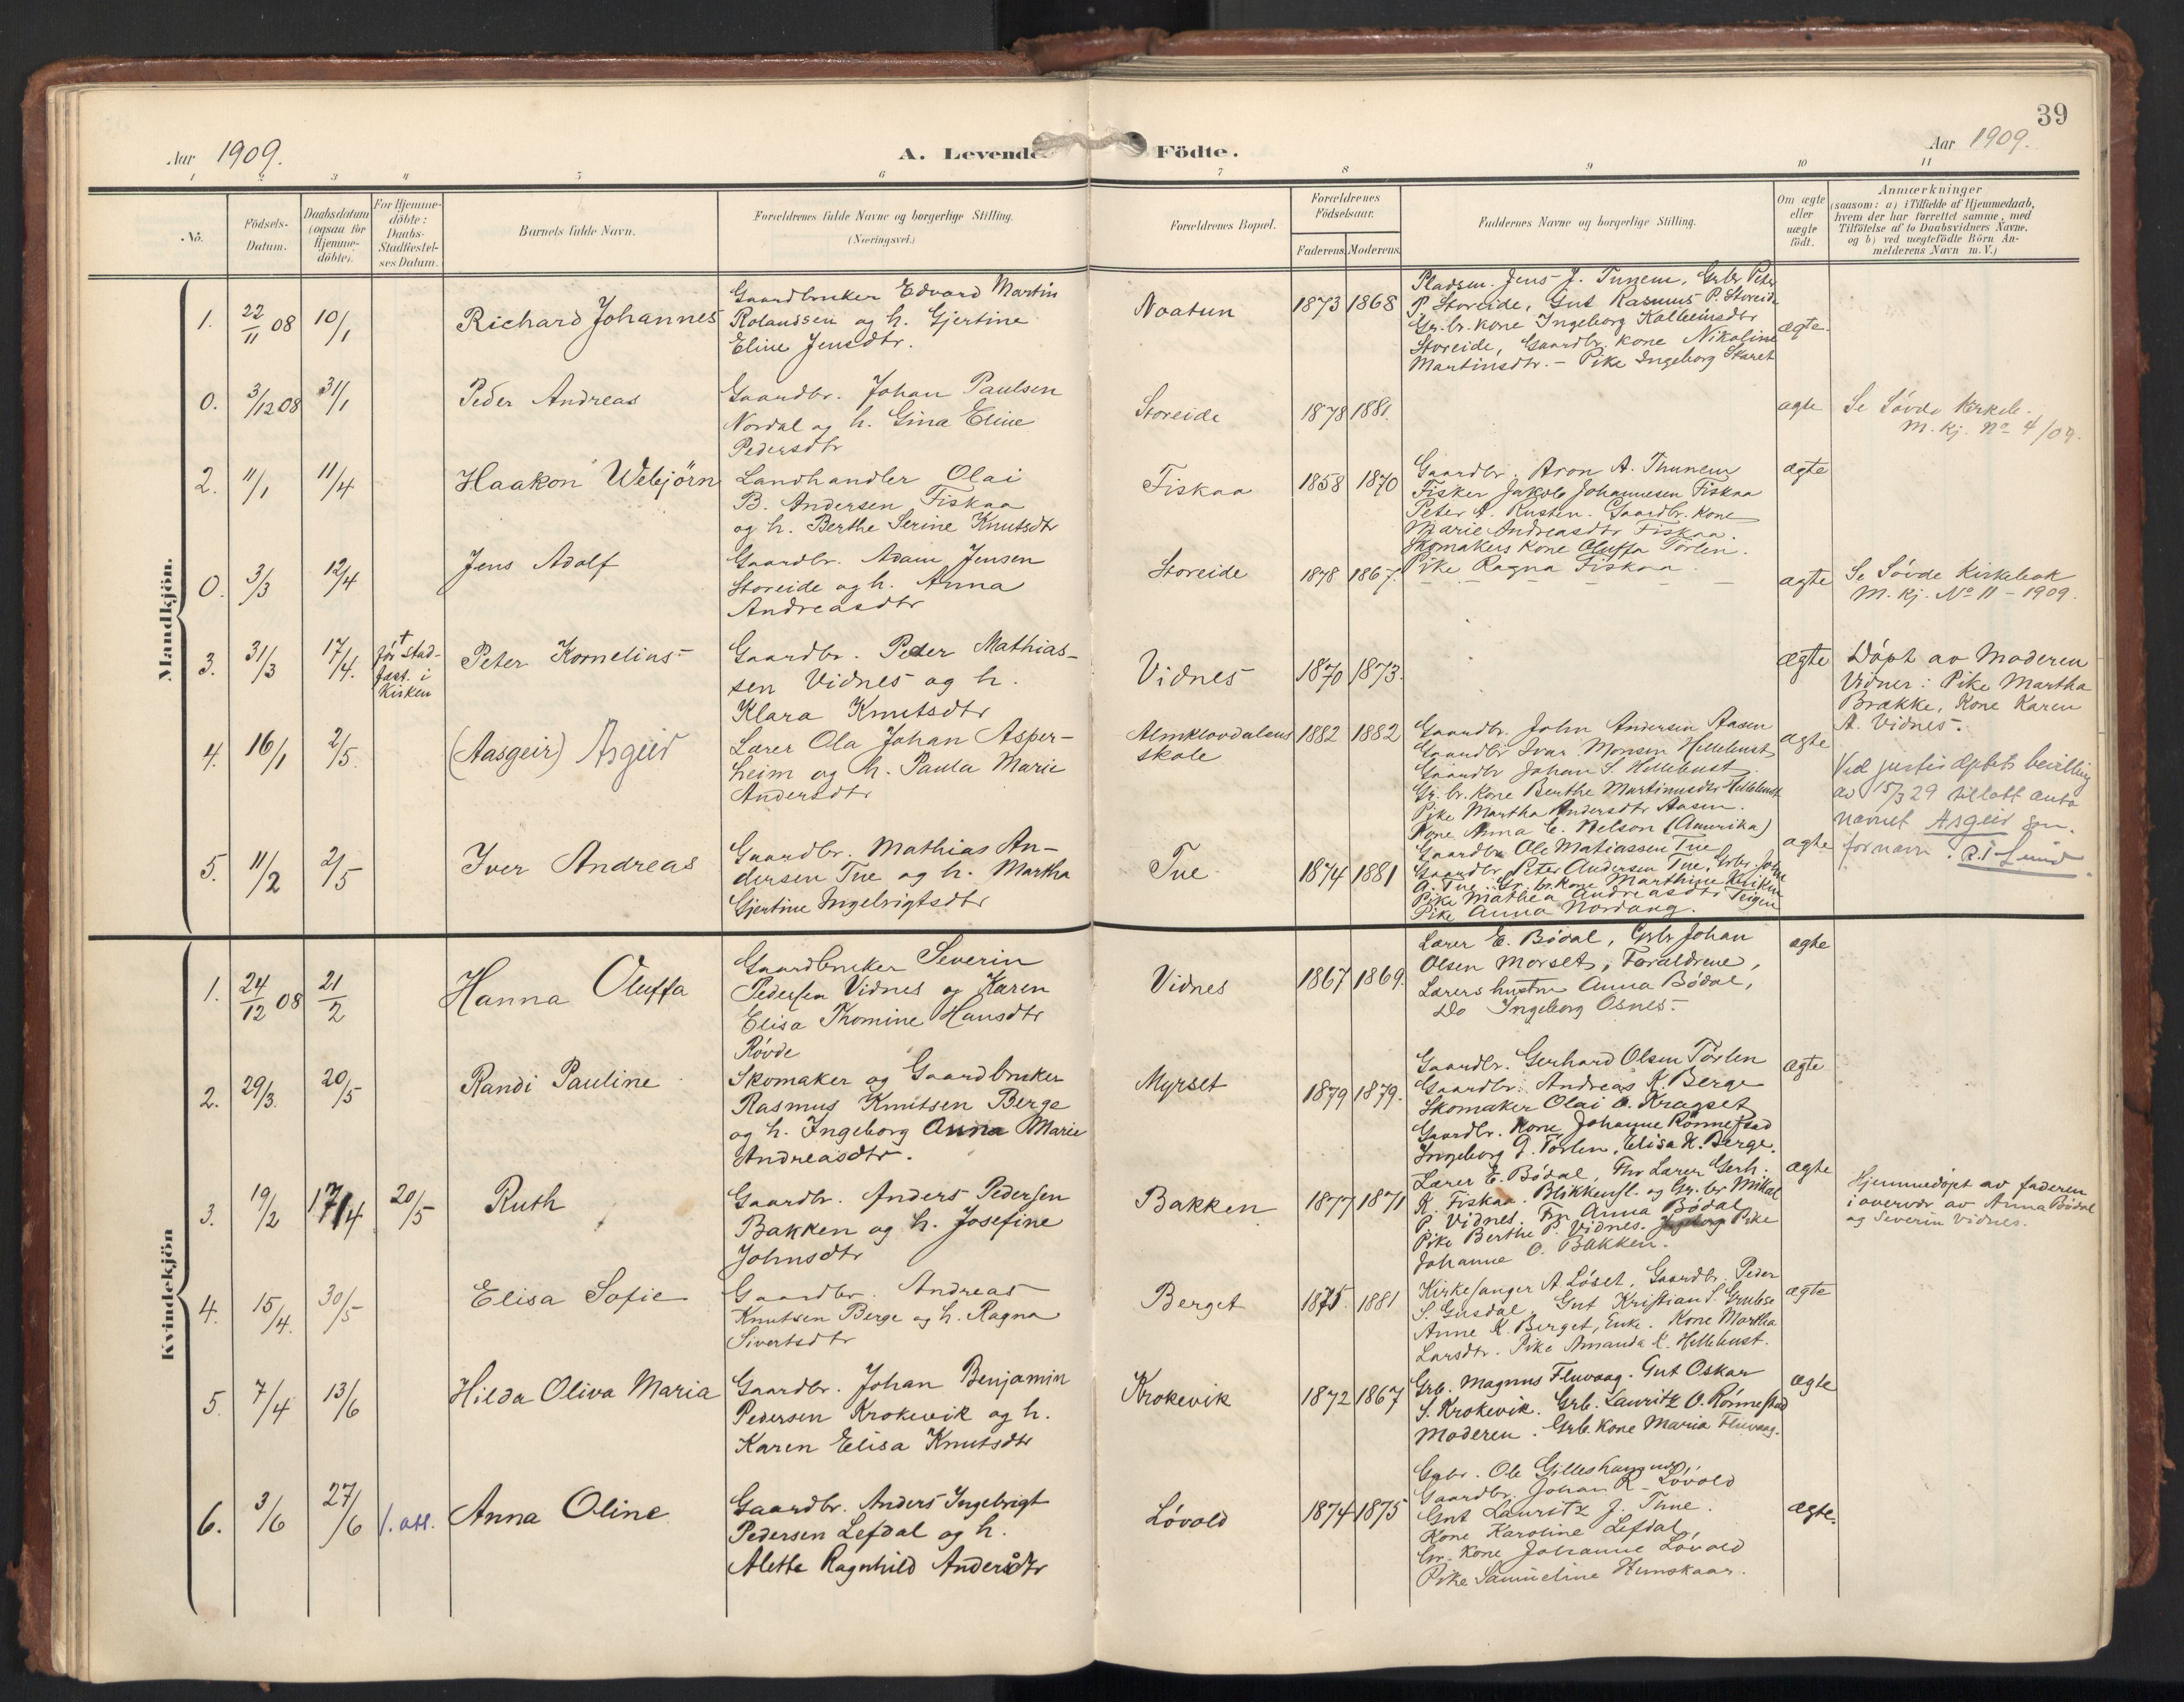 39
Aar 1909.
A. Levende
Födte.
Aar 1909.
1 2 3 4 5 6 7 8 9 10 11
No.
Födsels-
Datum.
Daabsdatum
(ogsaa for
Hjemme-
döbte).
For Hjemme-
döbte:
Daabs-
Stadfæstel-
ses Datum.
Barnets fulde Navn.
Forældrenes fulde Navne og borgerlige Stilling.
(Næringsvei.)
Forældrenes Bopæl.
Forældrenes
Födselsaar.
Faderens.
Moderens.
Faddernes Navne og borgerlige Stilling.
Om ægte
eller
uægte
född.
Anmærkninger
(saasom: a) i Tilfælde af Hjemmedaab,
hvem der har forrettet samme, med
Tilföielse af to Daabsvidners Navne,
og b) ved uegtefödte Börn An-
melderens Navn m. V.)
Mandkjön.
1.
22/11 08
10/1
Richard Johannes
Gaardbruker Edvard Martin
Rolandsen og h. Gjertine
Eline Jensdtr.
Noatun
1873
1868
Pladsm. Jens J. Tunem, Grbr Peter
P. Storeide, Gut Rasmus P. Storeide
Gr.br. kone Ingeborg Kolbeinsdtr
Storeide, Gaardbr. kone Nikoline
Martinsdtr. - Pike Ingeborg Skaret
ægte.
0.
3/12 08
31/1
Peder Andreas
Gaardbr. Johan Paulsen
Nordal og h. Gina Eline
Pedersdtr
Storeide
1878
1881.
ægte
Se Sövde Kirkeb.
M. kj. No 4/09.
2.
11/1
11/4
Haakon Webjörn
Landhandler Olai
B. Andersen Fiskaa
og h. Berthe Serine Knutsdtr
Fiskaa
1858
1870
Gaardbr. Aron A. Thunem
Fisker Jakob Johannesen Fiskaa
Peter A. Rusten. Gaardbr. kone
Marie Andreasdtr Fiskaa.
Skomakers kone Oluffa Törlen.
Pike Ragna Fiskaa.
ægte
0.
3/3
12/4
Jens Adolf
Gaardbr. Adam Jensen
Storeide og h. Anna
Andreasdtr
Storeide
1878
1867.
ægte
Se Sövde Kirkebok
M. kj. No 11 - 1909.
3.
31/3
17/4.
† för stad-
fæst. i
Kirken
Peter Kornelius
Gaardbr. Peder Mathias-
sen Vidnes og h.
Klara Knutsdtr
Vidnes
1870
1873.
ægte
Döpt av Moderen
Vidner: Pike Martha
Brække, Kone Karen
A. Vidnes.
4.
16/1
2/5.
(Aasgeir) Asgeir
Lærer Ola Johan Asper-
heim og h. Paula Marie
Andersdtr
Almklovdalens
skole
1882
1882
Gaardbr. John Andersen Aasen
Gaardbr Ivar Monsen Hellebust
Gaardbr Johan S. Hellebust.
Gr.br. kone Berthe Martinusdtr Hellebust
Pike Martha Andersdtr Aasen.
Kone Anna E. Nelson (Amerika)
ægte
Ved justisdptets bevilling
av 15/3 29 tillatt anta
navnet Asgeir som
fornavn.
5.
11/2
2/5
Iver Andreas
Gaardbr. Mathias An-
dersen Tue og h. Martha
Gjertine Ingebrigtsdtr
Tue
1874
1881
Gaardbr Ole Matiassen Tue
Gaardbr Peter Andersen Tue, Grbr John
A. Tue. Gr. br. kone Marthine
Pike Mathea Andreasdtr Teigen
Pike Anna Nordang.
ægte
Kvindekjön
1.
24/12 08
21/2
Hanna Oluffa
Gaardbruker Severin
Pedersen Vidnes og Karen
Elisa Thomine Hansdtr
Rövde
Vidnes
1867
1869.
Lærer E. Bödal, Grbr Johan
Olsen Morset, Forældrene,
Lærers hustru Anna Bödal,
Do Ingeborg Osnes.
ægte
2.
29/3.
20/5
Randi Pauline
Skomaker og Gaardbruker
Rasmus Knutsen Berge
og h. Ingeborg Anna Marie
Andreasdtr.
Myrset
1879
1879.
Gaardbr. Gerhard Olsen Törlen
Gaardbr. Andreas K Berge
Skomaker Olai O. Kragset
Gaardbr. kone Johanne Rönnestad
Ingeborg G. Törlen, Elisa K. Berge.
ægte
3.
19/2
17/4
20/5
Ruth
Gaardbr. Anders Pedersen
Bakken og h. Josefine
Johnsdtr
Bakken
1877
1871
Lærer E. Bödal, Fhv Lærer Gerh.
K. Fiskaa. Blikkensl. og Gr. br Mikal
P. Vidnes, Fru Anna Bödal
Pike Berthe P. Vidnes. Pike
Johanne O. Bakken.
ægte
Hjemmedöpt av faderen
i overvær av Anna Bödal
og Severin Vidnes.
4.
15/4.
30/5
Elisa Sofie
Gaardbr. Andreas
Knutsen Berge og h. Ragna
Sivertsdtr
Berget
1875.
1881
Kirkesanger A Löset, Gaardbr. Peder
S. Gusdal, Gut Kristian S. Grubse
Anne K. Berget, Enke. Kone Martha
Larsdtr. Pike Amanda K. Hellebust.
ægte
5.
7/4
13/6
Hilda Oliva Maria
Gaardbr. Johan Benjamin
Pedersen Krokevik og h.
Karen Elisa Knutsdtr
Krokevik
1872
1867
Grb. Magnus Fluvaag. Gut Oskar
S. Krokevik. Grb. Lauritz O. Rönnestad
Moderen. Grb. kone Maria Fluvaag.
ægte
6.
3/6
27/6
1. att.
Anna Oline
Gaardbr. Anders Ingebrigt
Pedersen Lefdal og h.
Alette Ragnhild Andersdtr
Lövold
1874
1875
Gabr. Ole Gilleshammer,
Gaardbr. Johan R. Lövold
Gut Lauritz J. Thue.
Kone Karoline Lefdal,
Gr. kone Johanne Lövold
Pike Samueline Humskaar.
ægte.